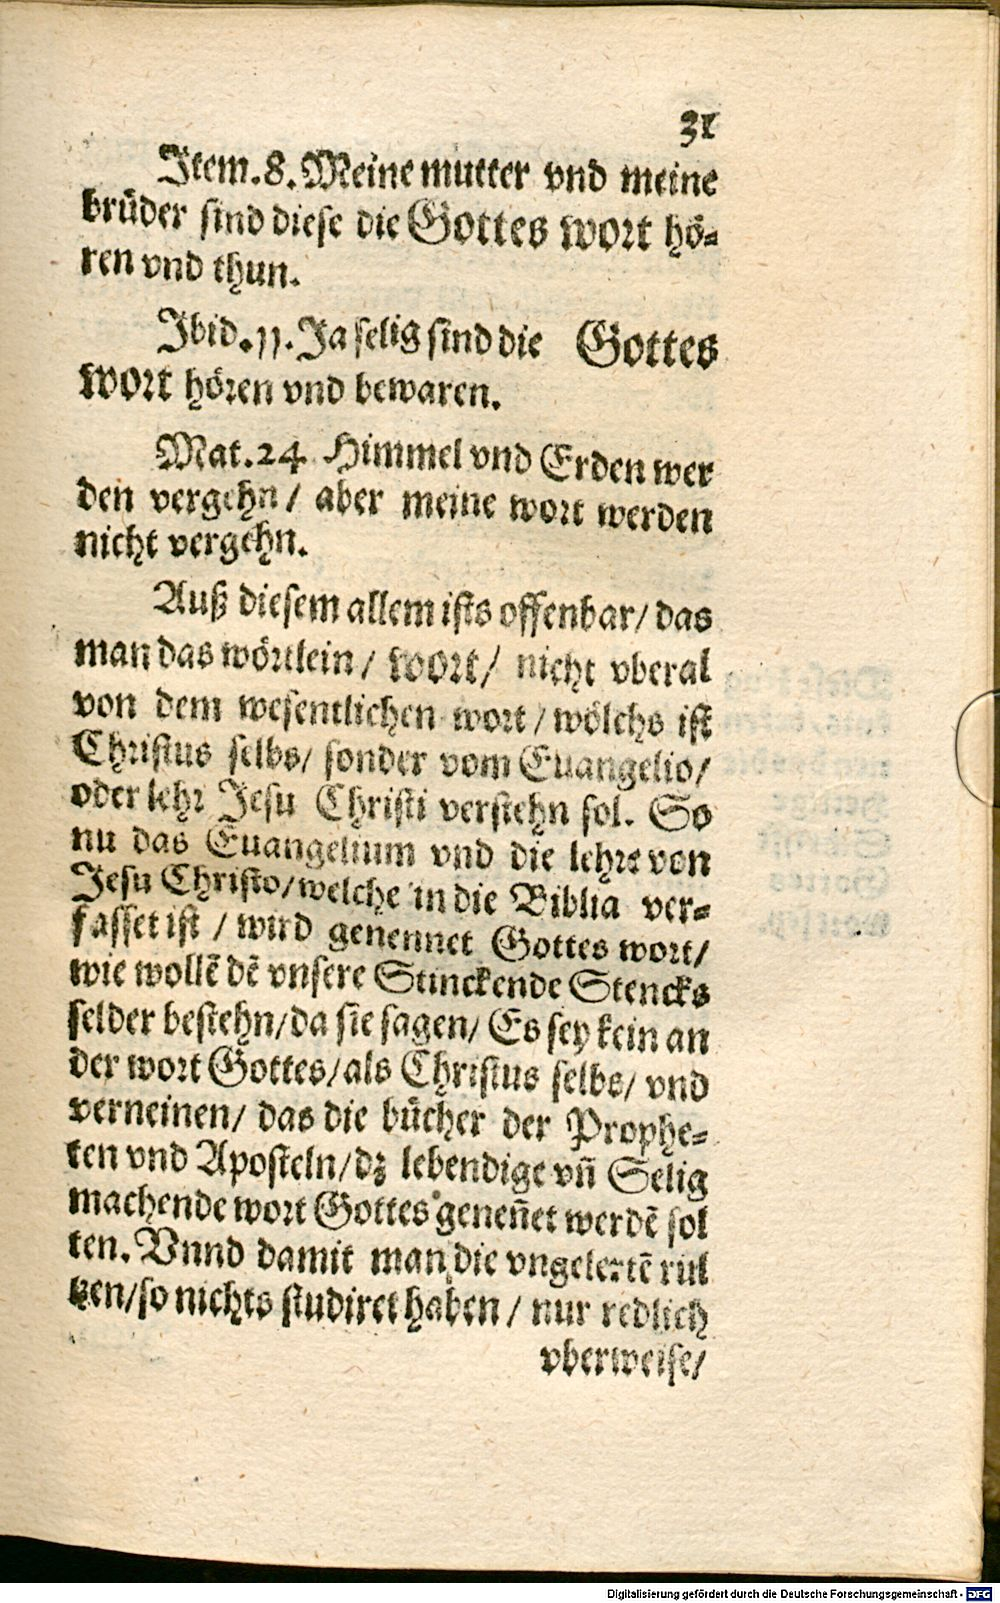 31
Item. 8. Meine mutter vnd meine
brüder sind diese die Gottes wort hö⸗
ren vnd thun.
Ibid. 11. Ja selig sind die Gottes
wort hören vnd bewaren.
Mat. 24 Himmel vnd Erden wer
den vergehn / aber meine wort werden
nicht vergehn.
Auß diesem allem ists offenbar / das
man das wörtlein / wort / nicht vberal
von dem wesentlichen wort / wölchs ist
Christus selbs / sonder vom Euangelio /
oder lehr Jesu Christi verstehn sol. So
nu das Euangelium vnd die lehre von
Jesu Christo / welche in die Biblia ver⸗
fasset ist / wird genennet Gottes wort /
wie wollē dē vnsere Stinckende Stencks
felder bestehn / da sie sagen / Es sey kein an
der wort Gottes / als Christus selbs / vnd
verneinen / das die bücher der Prophe⸗
ten vnd Aposteln / dz lebendige vñ Selig
machende wort Gottes geneñet werdē sol
ten. Vnnd damit man die vngelertē rül
tzen / so nichts studiret haben / nur redlich
vberweise /
Digitalisierung gefördert durch die Deutsche Forschungsgemeinschaft - DFG